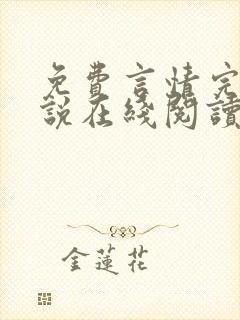 免費言情完
説在綫閱讀
金蓮花